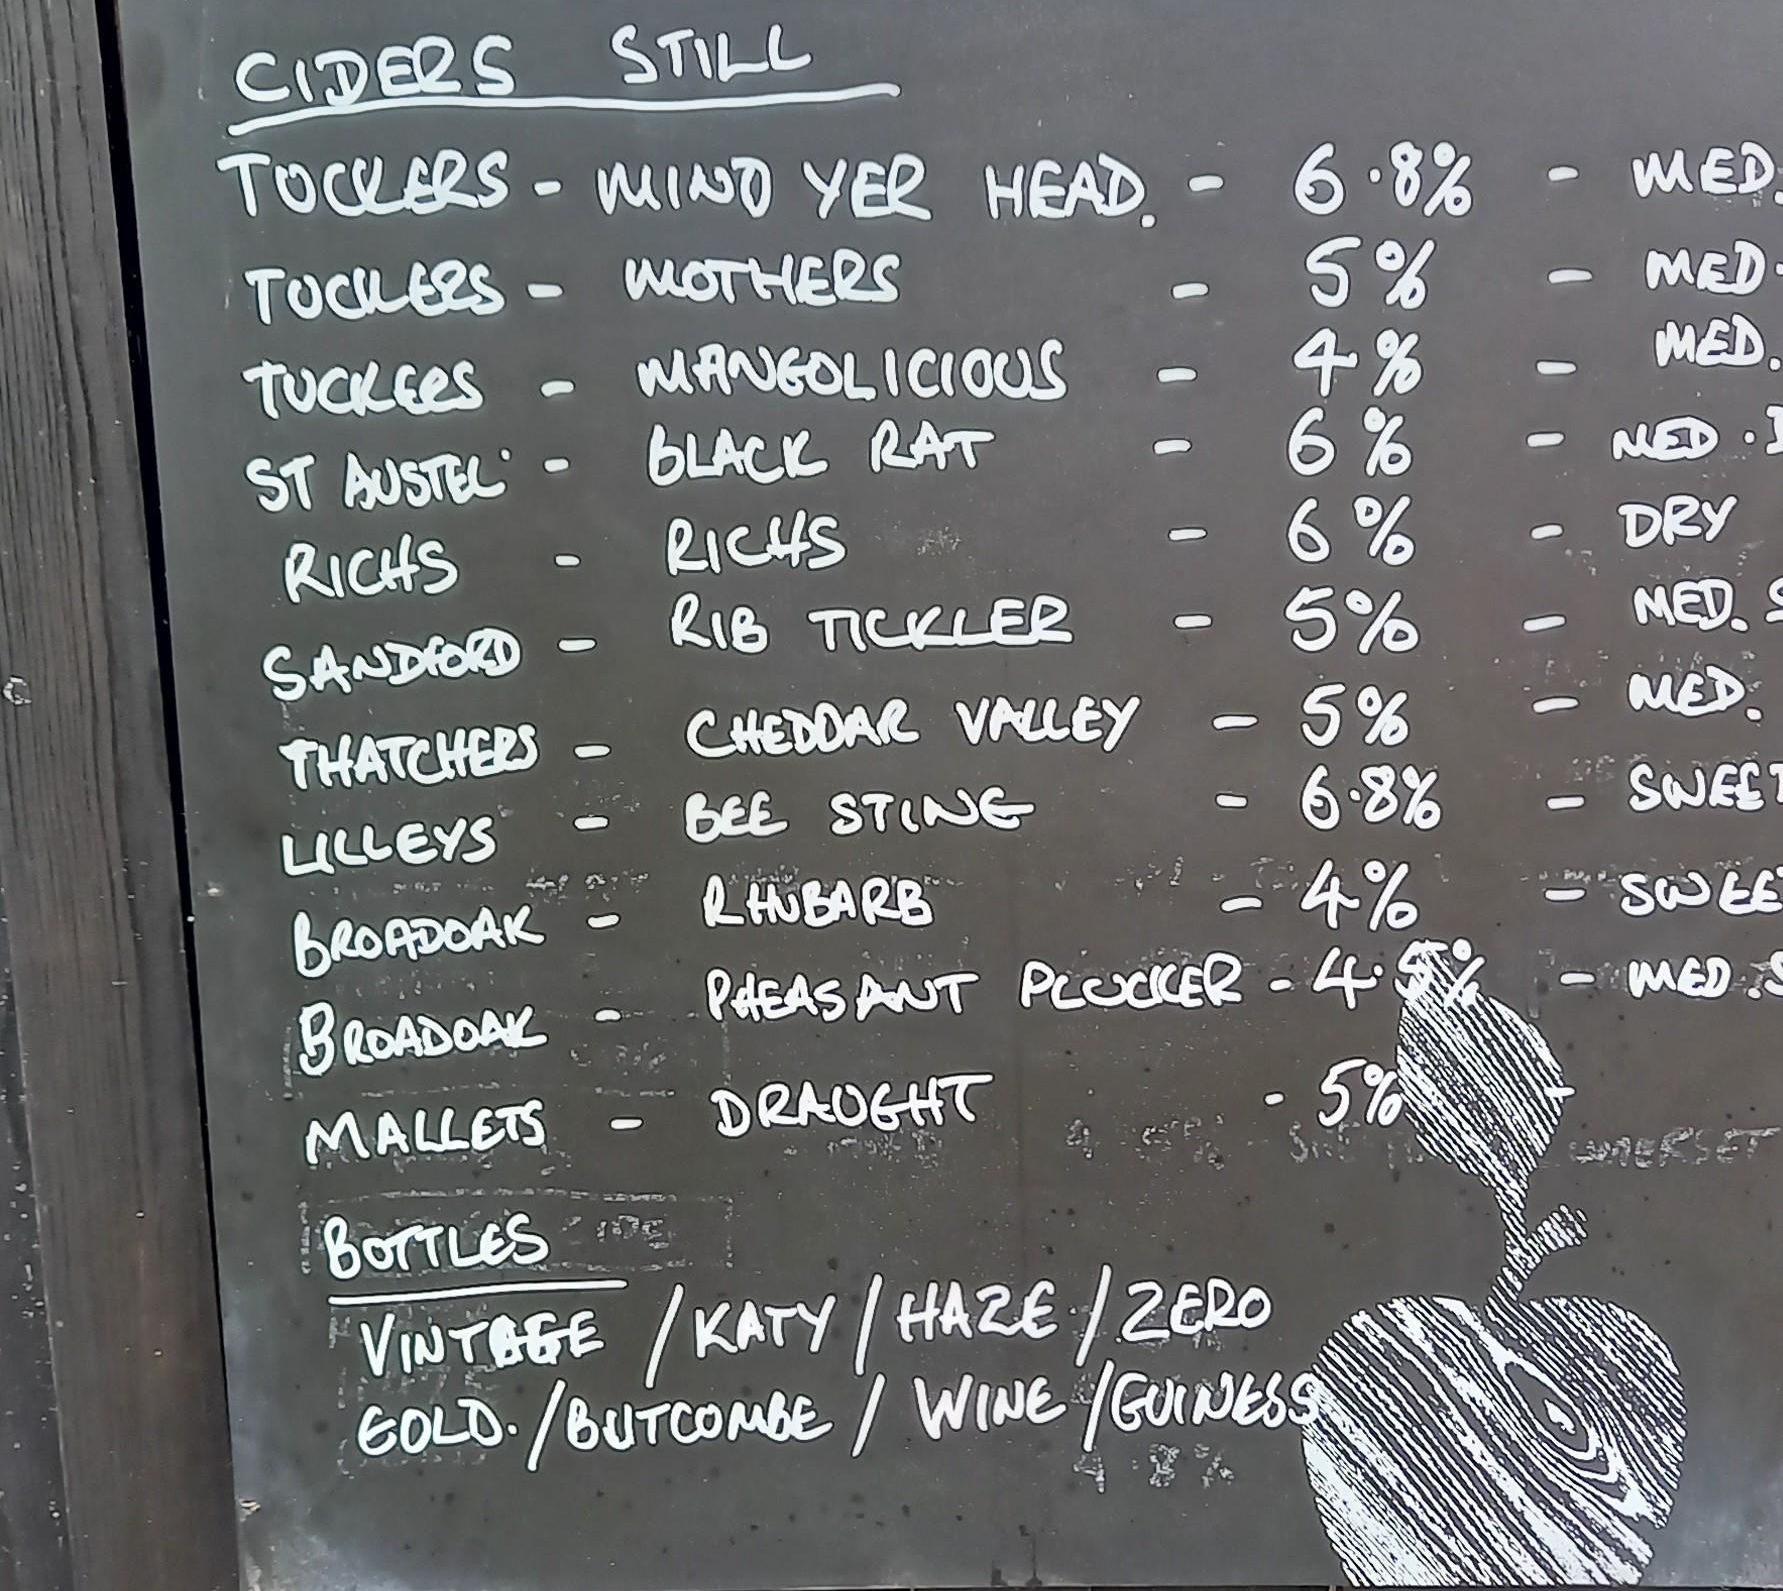 CIDERS STILL
TUCKERS - MIND YER HEAD. - 6.8% - MED.
TUCKERS - MOTHERS - 5% - MED.
TUCKERS - MANGOLICIOUS - 4% - MED.
ST AUSTEL' - BLACK RAT - 6% - MED.
RICHS - RICHS - 6% - DRY
SANDFORD - RIB TICKLER - 5% - MED. S
THATCHERS - CHEDDAR VALLEY - 5% - MED.
LILLEYS - BEE STING - 6.8% - SWEET
BROADOAK - RHUBARB - 4% - SWEE
BROADOAK - PHEASANT PLUCKER - 4.5% - MED.S
MALLETS - DRAUGHT - 5%
BOTTLES
VINTAGE / KATY / HAZE / ZERO
GOLD. / BUTCOMBE / WINE / GUINESS